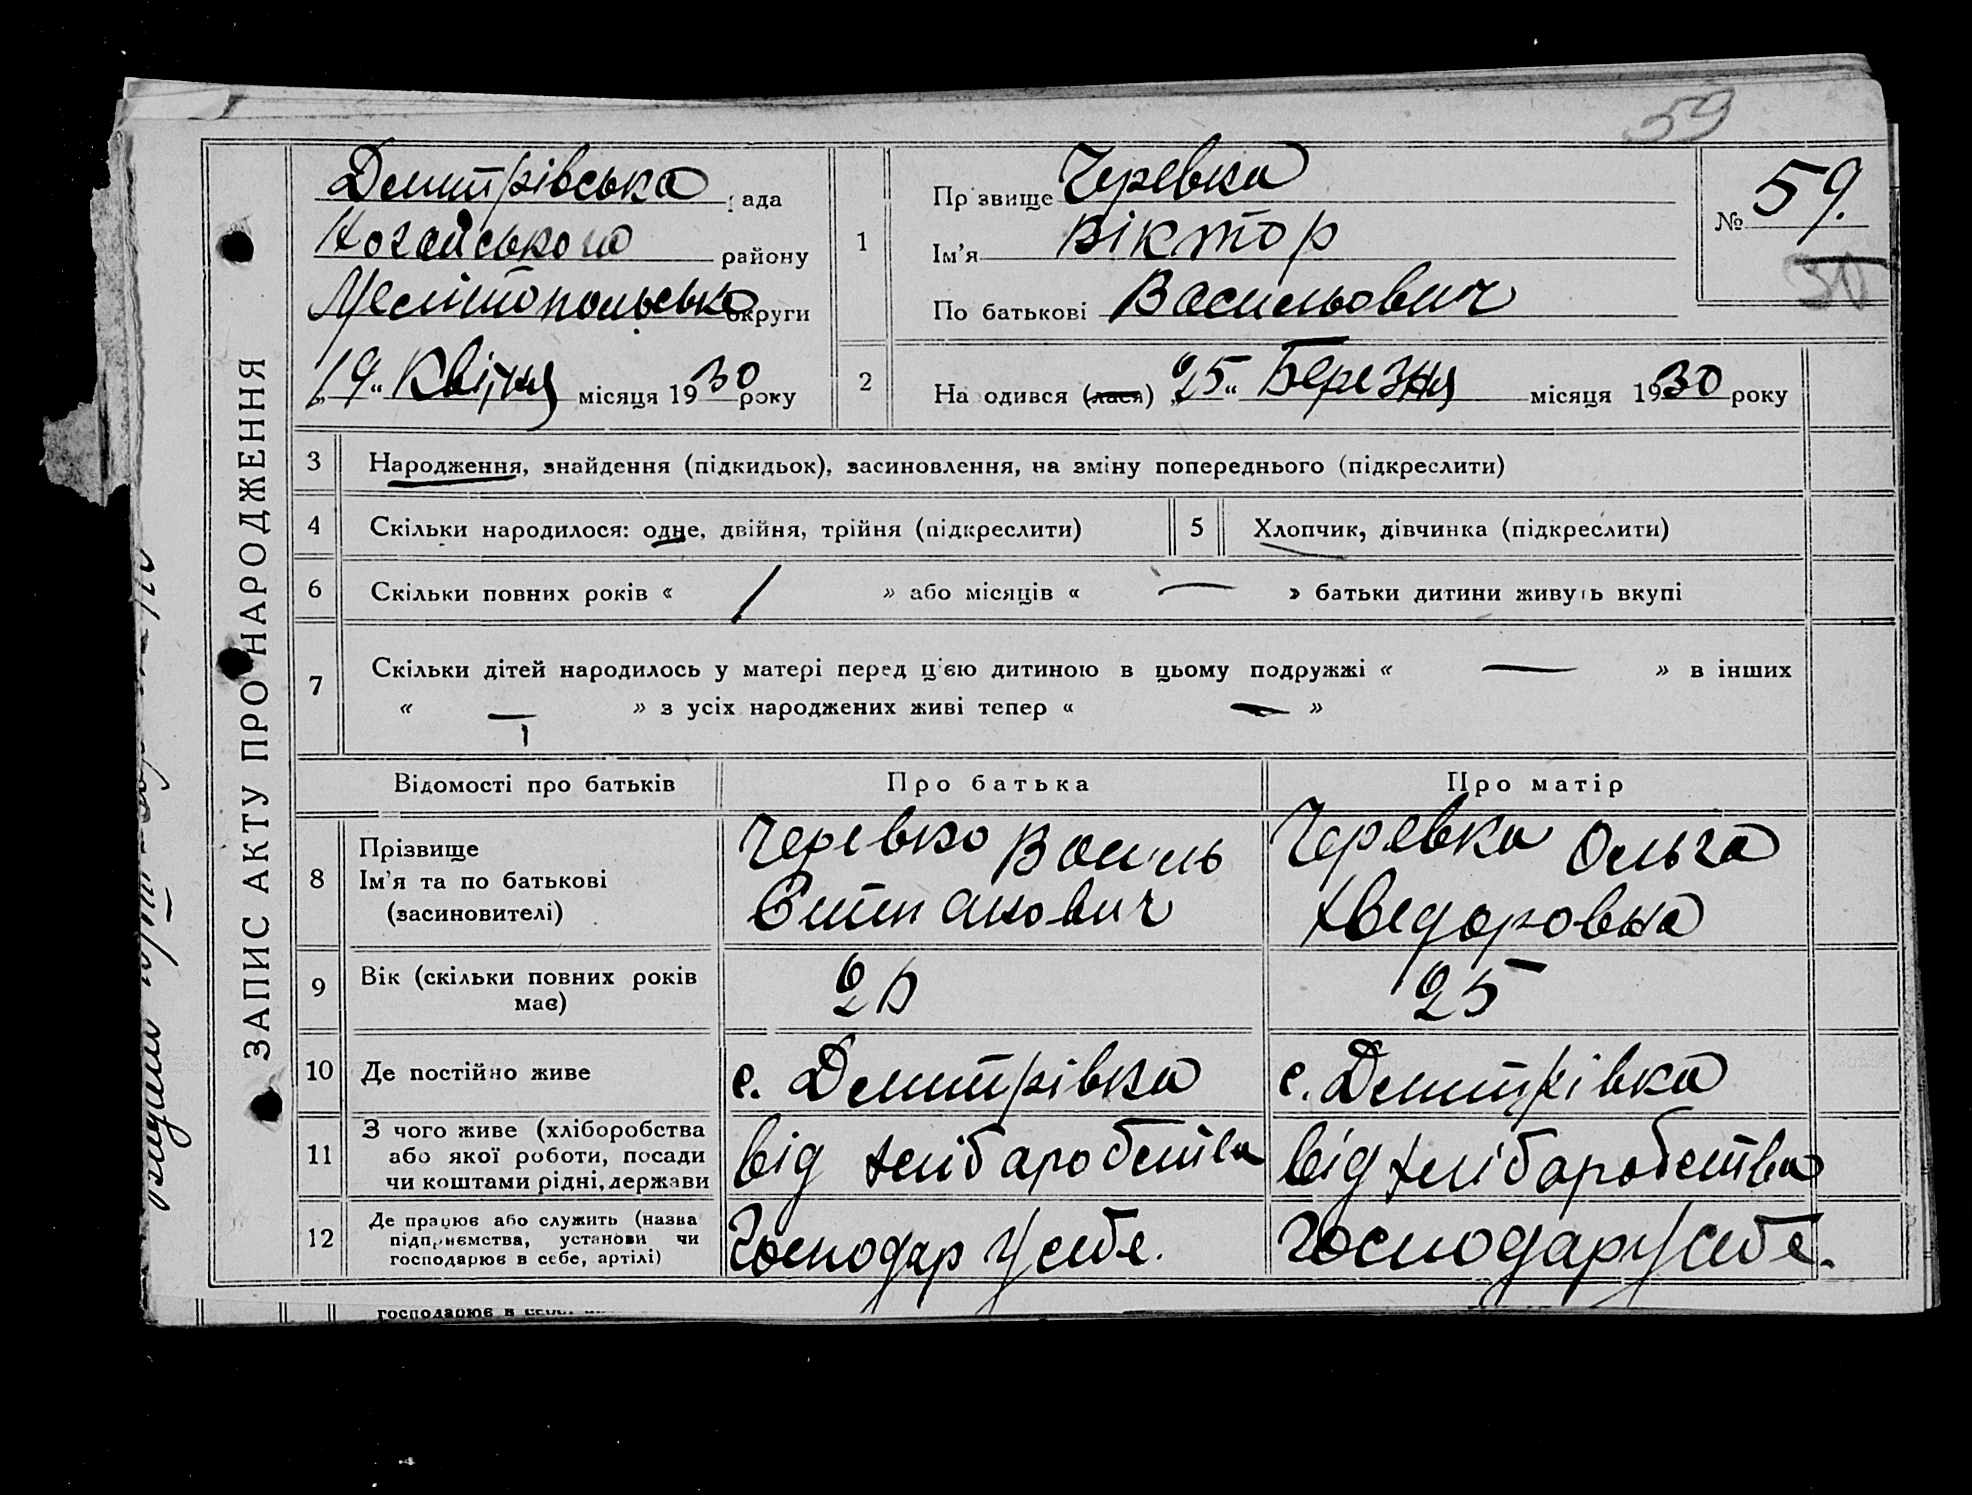 59
ЗАПИС АКТУ ПРО НАРОДЖЕННЯ
Дмитрівська рада
Ногайського району
Мелітопольсько округи
„19“ Квітня місяця 1930 року
1
Прізвище Черевка
Ім’я Віктор
По батькові Васильович
№ 59.
30
2
На одився (лася) „25“ Березня місяця 1930 року
3 Народження, знайдення (підкидьок), засиновлення, на зміну попереднього (підкреслити)
4 Скільки народилося: одне, двійня, трійня (підкреслити)
5 Хлопчик, дівчинка (підкреслити)
6 Скільки повних років « / » або місяців « — » батьки дитини живуть вкупі
7 Скільки дітей народилось у матері перед ц’єю дитиною в цьому подружжі « — » в інших
« — » з усіх народжених живі тепер « — »
Відомості про батьків Про батька Про матір
8 Прізвище
Ім’я та по батькові
(засиновителі)
Черевко Василь
Степанович
Черевка Ольга
Хведоровна
9 Вік (скільки повних років
має)
25
10 Де постійно живе
с. Дмитрівка
с. Дмитрівка
11 З чого живе (хліборобства
або якої роботи, посади
чи коштами рідні, держави
від хлібаробства
від хлібаробства
12 Де працює або служить (назва
підприємства, установи чи
господарює в себе, артілі)
Господар у себе.
Господар у себе.
господарює в себе,